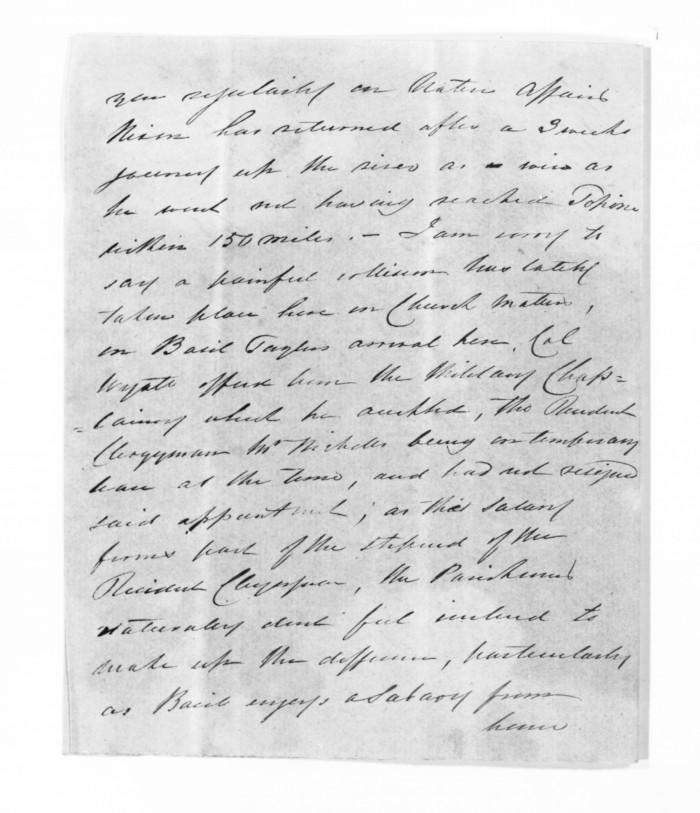 you regularly on Native Affairs
Nixon has returned after a 3 weeks
journey up the river as wise as
he went not having reached Topine
within 150 miles. – I am sorry to
say a painful collision has lately
taken place here in Church matters,
on Basil Taylors arrival here, Col
Wyatt offered him the Military Chap=
=laincy which he accepted, the Resident
Clergyman Mr Nicholls being on temporary
leave at the time, and had not resigned
said appointment; as this Salary
forms part of the stipend of the
Resident Clergyman, the Parishioners
naturally dont feel inclined to
make up the difference, particularly
as Basil enjoys a Salary from
home